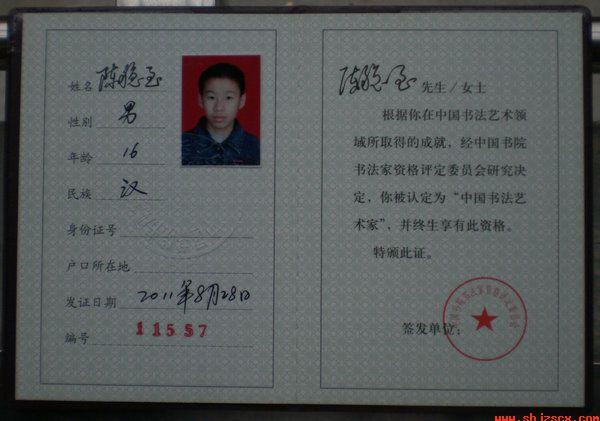 姓名 陈聪
性别 男
年龄 16
民族 汉
身份证号
户口所在地
发证日期 2011年8月28日
编号 11557
陈聪 先生/女士
根据你在中国书法艺术领
域所取得的成就，经中国书院
书法家资格评定委员会研究决
定，你被认定为“中国书法艺
术家”，并终生享有此资格。
特颁此证。
签发单位：
www.shjzscx.com